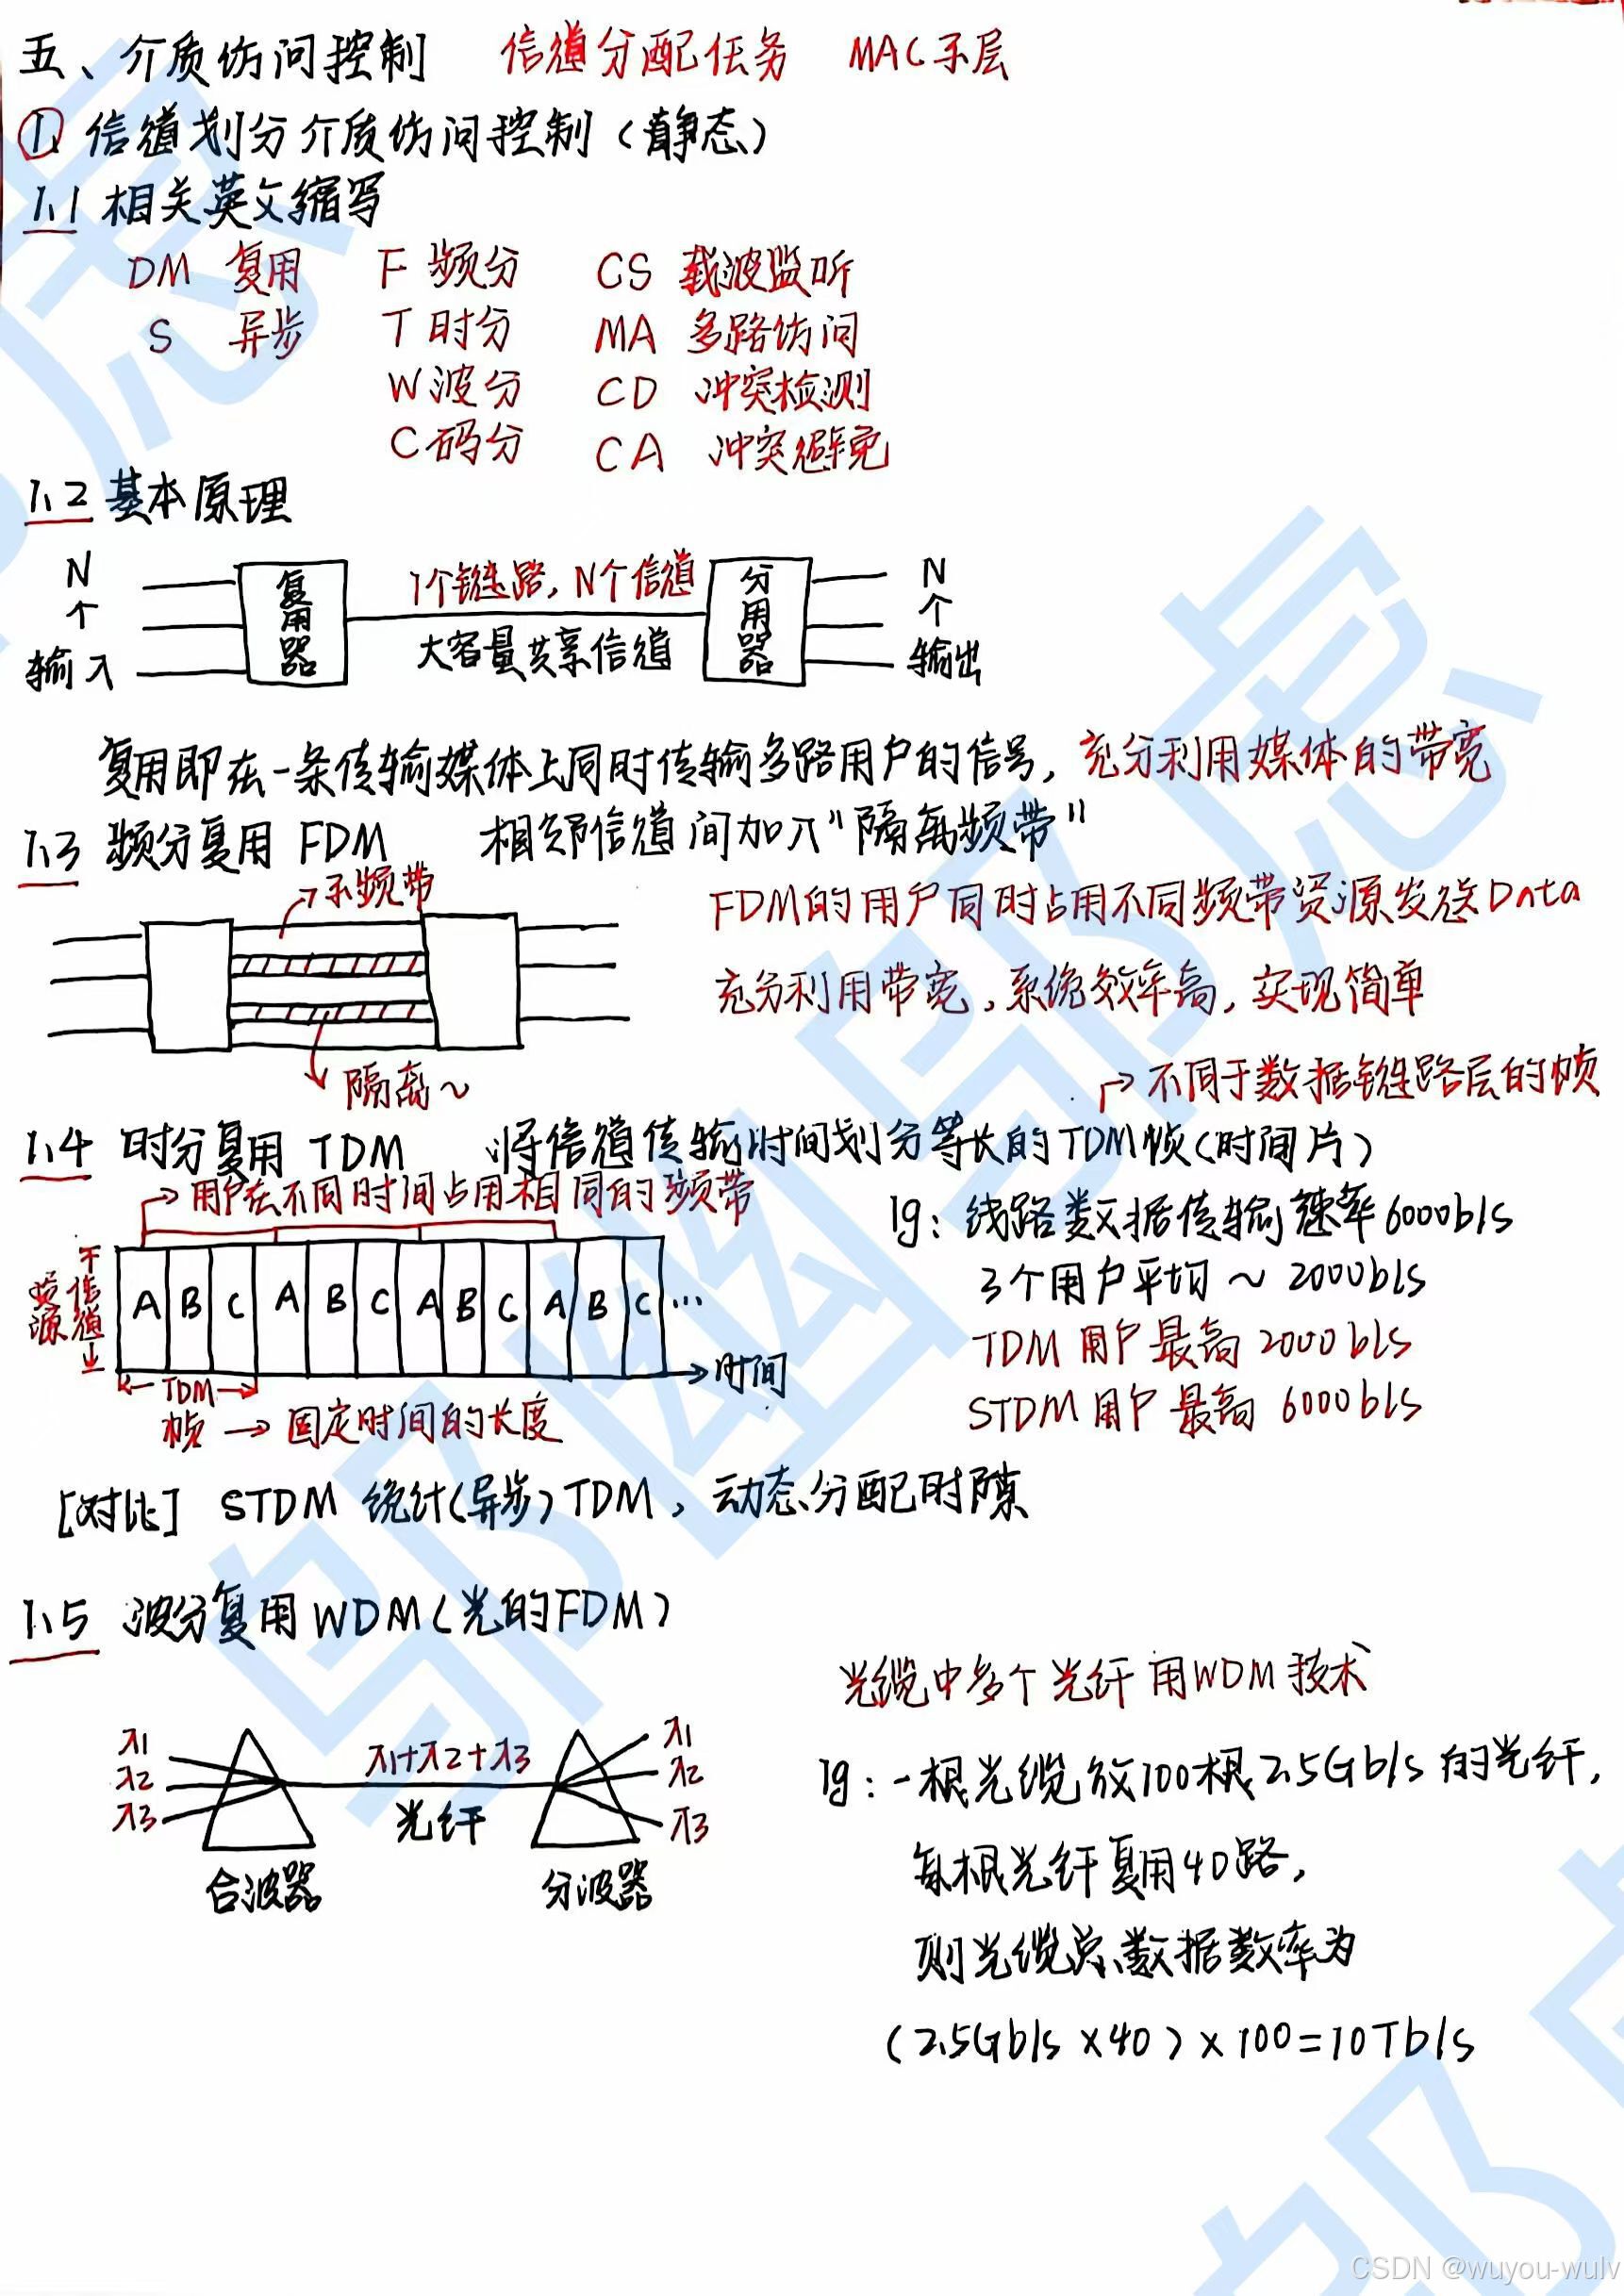 五、介质访问控制 信道分配任务 MAC子层
① 信道划分介质访问控制（静态）
1.1 相关英文缩写
DM 复用 F 频分 CS 载波监听
S 异步 T 时分 MA 多路访问
W 波分 CD 冲突检测
C 码分 CA 冲突避免
1.2 基本原理
N个输入
复用器
1个链路，N个信道
大容量共享信道
分用器
N个输出
复用即在一条传输媒体上同时传输多路用户的信号，充分利用媒体的带宽
1.3 频分复用 FDM 相邻信道间加入“隔离频带”
子频带
隔离~
FDM的用户同时占用不同频带资源发送Data
充分利用带宽，系统效率高，实现简单
不同于数据链路层的帧
1.4 时分复用 TDM 将信道传输时间划分等长的TDM帧（时间片）
用户在不同时间占用相同的频带
干信道资源
A B C A B C A B C A B C ...
时间
TDM帧 → 固定时间的长度
1g：线路数据传输速率6000b/s
3个用户平均~2000b/s
TDM 用户最高2000b/s
STDM 用户最高 6000b/s
[对比] STDM 统计（异步）TDM，动态分配时隙
1.5 波分复用 WDM（光的FDM）
λ1
λ2
λ3
合波器
λ1+λ2+λ3
光纤
分波器
λ1
λ2
λ3
光缆中多个光纤用WDM技术
1g：一根光缆放100根2.5Gb/s的光纤，
每根光纤复用40路，
则光缆总数据数率为
（2.5Gb/s×40）×100=10Tb/s
邬幽邬虑
CSDN @wuyou-wulv